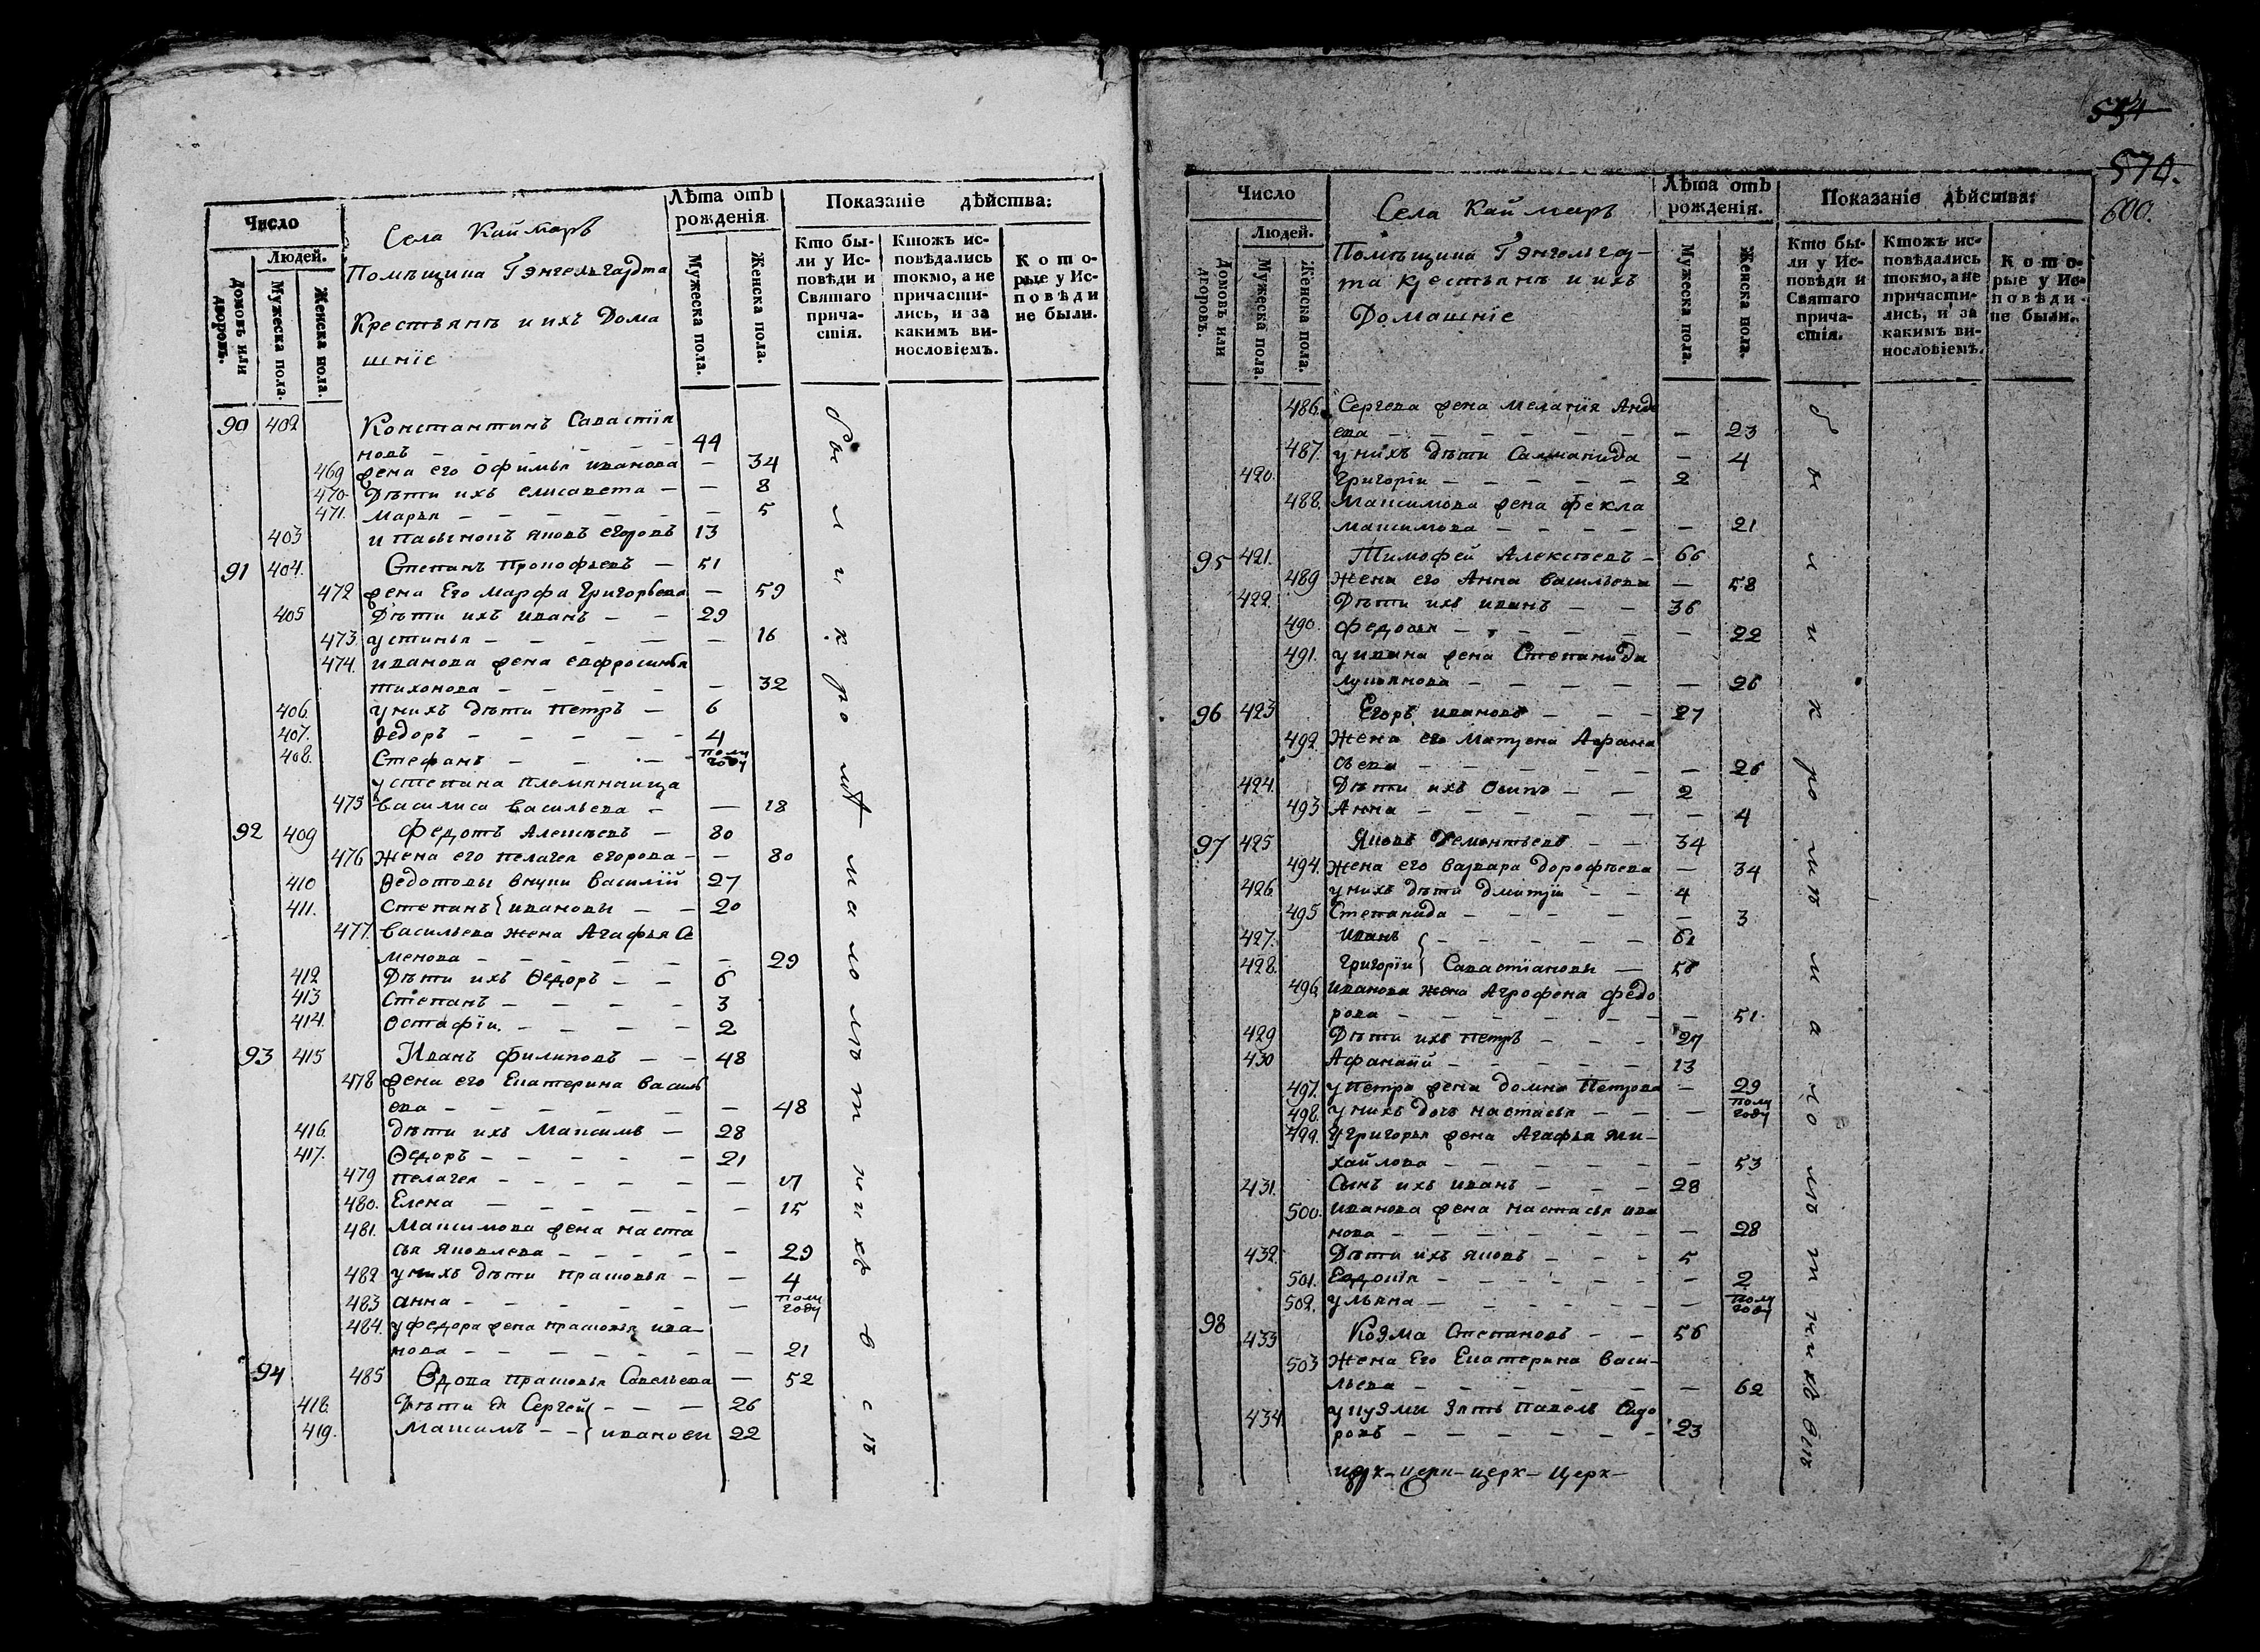 Число
Людей.
Домовъ или дворовъ.
Мужеска пола.
Женска пола.
Села Каймаръ
Помѣщика Гэнгельгардта
Крестьянъ и ихъ Дома
шнїе
Лѣта отъ рожденія.
Мужеска пола.
Женска пола.
Показаніе дѣйства:
Кто бы-
ли у Ис-
повѣди и
Святаго
прича-
стія.
Ктожъ ис-
повѣдались
токмо, а не
причасти-
лись, и за
какимъ ви-
нословіемъ.
К о т о-
рые у Ис-
п о в ѣ д и
не были.
90 402 Константинъ Савастїя
новъ — — — — 44
469 жена его Офимья иванова — 34
470 Дѣти ихъ елисавета — — 8
471. Марья — — — — — 5
403 и пасынокъ яковъ егоровъ 13
91 404. Степанъ Прокофьевъ — 51
472 жена Его марфа Григорьева — 59
405 Дѣти ихъ иванъ — — 29
473. устинья — — — — — 16
474. иванова жена евфросинья
тихонова — — — — — 32
406. у нихъ дѣти петръ — 6
407. Ѳедоръ — — — — — 4
408. Стефанъ — — — полу году
у степана племянница
475 василиса васильева — — 18
92 409 Федотъ Алексѣевъ — 80
476 жена его пелагея егорова — — 80
410 Ѳедотовы внуки василїй 27
411. Степанъ { ивановы — — 20
477. васильева жена Агафья Се
менова — — — — — — 29
412 Дѣти ихъ Ѳедоръ — — 6
413 Степанъ — — — — 3
414. Остафїи — — — — 2
93 415 Иванъ филиповъ — — 48
478 жена его Екатерина василь
ева — — — — — — 48
416. дѣти ихъ Максимъ — 28
417. Ѳедоръ — — — — — 21
479 пелагея — — — — — —
480. Елена — — — — — — 15
481. Максимова жена наста
сья яковлева — — — — — 29
482 у нихъ дѣти прасковья — — 4
483 анна — — — — — — полу году
484. у федора жена прасковья ива—
нова — — — — — — 21
94 485 Вдова прасковья Савельева — 52
418. Дѣти ея Сергей { — — — 26
419. Максимъ — — { ивановы 22
были к ромѣ малолѣт нихъ всѣ
554
570.
600.
Число
Людей.
Домовъ или дворовъ.
Мужеска пола.
Женска пола.
Села Каймаръ
Помѣщика Гэнгельгар—
та крестьянъ и ихъ
Домашнїе
Лѣта отъ рожденія.
Мужеска пола.
Женска пола.
Показаніе дѣйства:
Кто бы-
ли у Ис-
повѣди и
Святаго
прича-
стія.
Ктожъ ис-
повѣдались
токмо, а не
причасти-
лись, и за
какимъ ви-
нословіемъ.
К о т о-
рые у Ис-
п о в ѣ д и
не были.
486. Сергева жена меланїя Андре
ева — — — — — — — 23
487. у нихъ дѣти Саломанида — 4
420. Григорїи — — — — — 2
488. Максимова жена фекла
максимова — — — — — 21
95 421. Тимофей Алексѣевъ — 66
489 жена его Анна васильева — 58
422 Дѣти ихъ иванъ — — 36
490. Федосья — — — — — — 22
491. у ивана жена Степанида
лукьянова — — — — — — 26
96 423 Егоръ ивановъ — — — 27
492. жена его матрена Афана
сьева — — — — — — — 26
424. Дѣти ихъ Осипъ — — 2
493 Анна — — — — — — — 4
97 425 Яковъ Дементьевъ — — 34
494. жена его варвара дорофѣева — 34
426. у нихъ дѣти дмитрїи — — 4
495 Степанида — — — — — — 3
427. иванъ { — — — — — 61
428. Григорїи { Савастїановы — 56
496. иванова жена Агрофена федо
рова — — — — — — — 51
429 Дѣти ихъ петръ — — — 27
430 Афанасїй — — — — — 13
497. у петра жена домна Петрова — 29
498. у нихъ дочь настасья — — — полу году
499. у григорья жена Агафья ми—
хайлова — — — — — — 53
431. Сынъ ихъ иванъ — — — 28
500. иванова жена настасья ива
нова — — — — — — — 28
432. Дѣти ихъ яковъ — — — 5
501. Евдокїя — — — — — — — 2
502. ульяна — — — — — — — полу году
98 433 Козма Степановъ — — 56
503 жена Его Екатерина васи—
льева — — — — — — — 62
434 у кузмы зять павелъ Сидо
ровъ — — — — — — — 23
церк— церк— церк— Церк—
были к ромѣ малолѣт нихъ всѣ